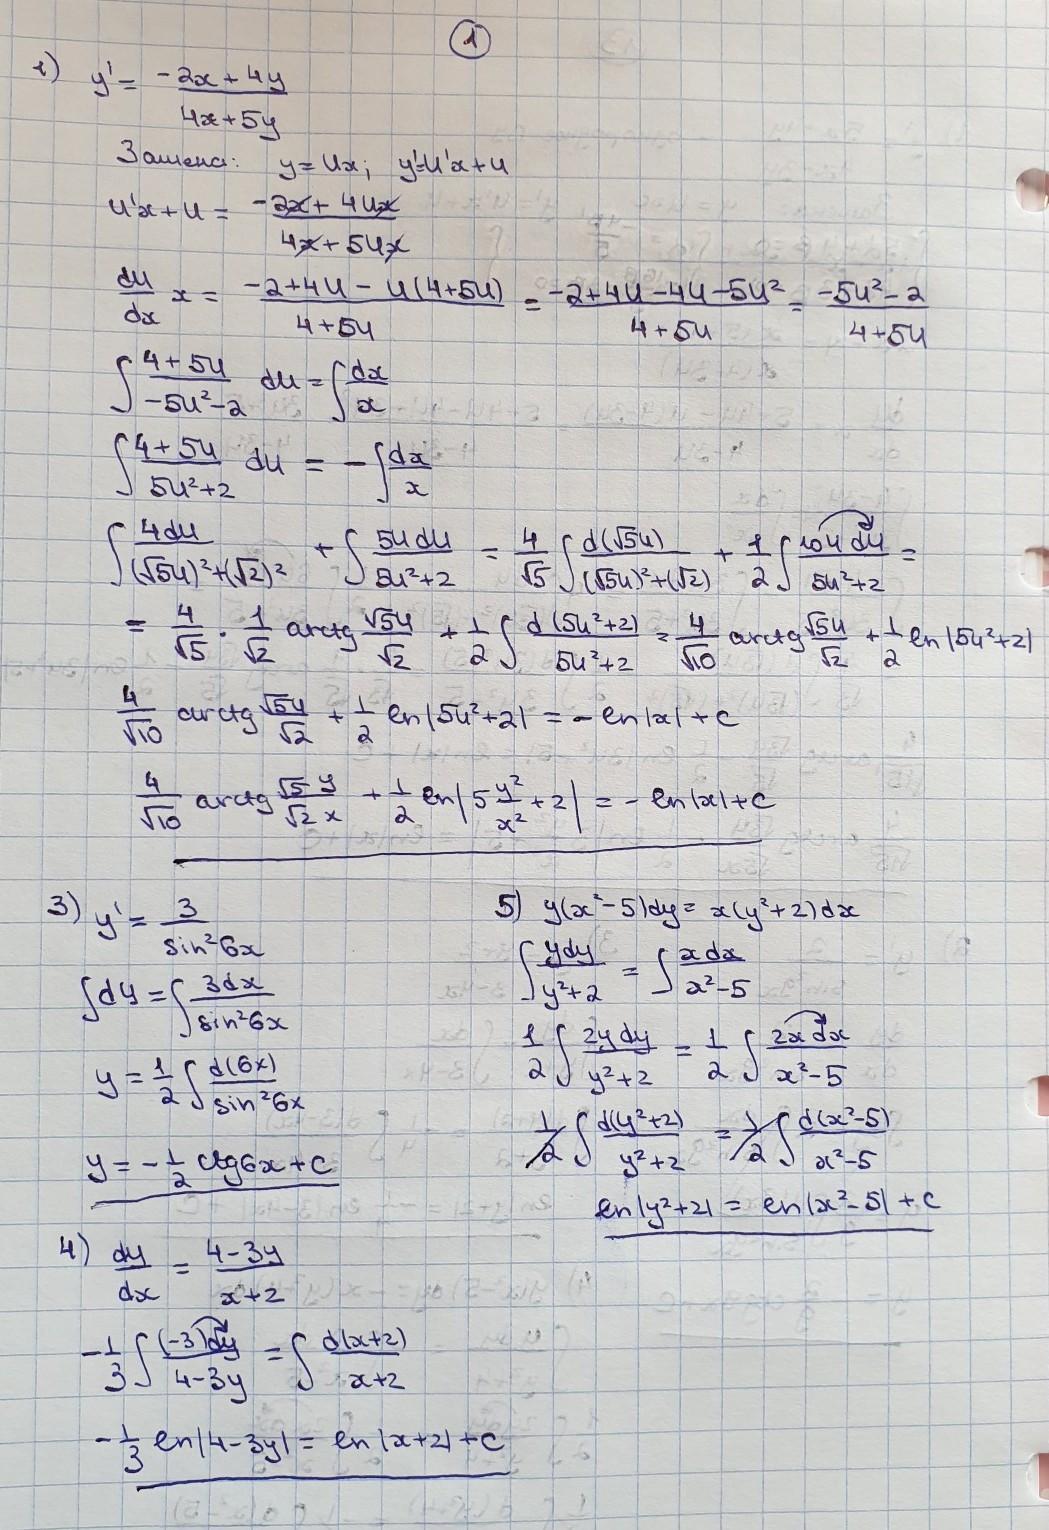 1
1) y' = (-2x + 4y)/(4x + 5y)
Замена: y = ux; y' = u'x + u
u'x + u = (-2x + 4ux)/(4x + 5ux)
du/dx x = (-2 + 4u - u(4 + 5u))/(4 + 5u) = (-2 + 4u - 4u - 5u²)/(4 + 5u) = (-5u² - 2)/(4 + 5u)
∫ (4 + 5u)/(-5u² - 2) du = ∫ dx/x
∫ (4 + 5u)/(5u² + 2) du = -∫ dx/x
∫ 4du/((√5u)² + (√2)²) + ∫ 5u du/(5u² + 2) = 4/√5 ∫ d(√5u)/((√5u)² + (√2)) + 1/2 ∫ 10u du/(5u² + 2) =
= 4/√5 · 1/√2 arctg √5u/√2 + 1/2 ∫ d(5u² + 2)/(5u² + 2) = 4/√10 arctg √5u/√2 + 1/2 ln|5u² + 2|
4/√10 arctg √5u/√2 + 1/2 ln|5u² + 2| = -ln|x| + C
4/√10 arctg √5 y/√2 x + 1/2 ln|5 y²/x² + 2| = -ln|x| + C
3) y' = 3/sin²6x
∫ dy = ∫ 3dx/sin²6x
y = 1/2 ∫ d(6x)/sin²6x
y = -1/2 ctg6x + C
4) dy/dx = (4 - 3y)/(x + 2)
-1/3 ∫ (-3)dy/(4 - 3y) = ∫ d(x + 2)/(x + 2)
-1/3 ln|4 - 3y| = ln|x + 2| + C
5) y(x² - 5)dy = x(y² + 2)dx
∫ ydy/(y² + 2) = ∫ xdx/(x² - 5)
1/2 ∫ 2ydy/(y² + 2) = 1/2 ∫ 2xdx/(x² - 5)
1/2 ∫ d(y² + 2)/(y² + 2) = 1/2 ∫ d(x² - 5)/(x² - 5)
ln|y² + 2| = ln|x² - 5| + C